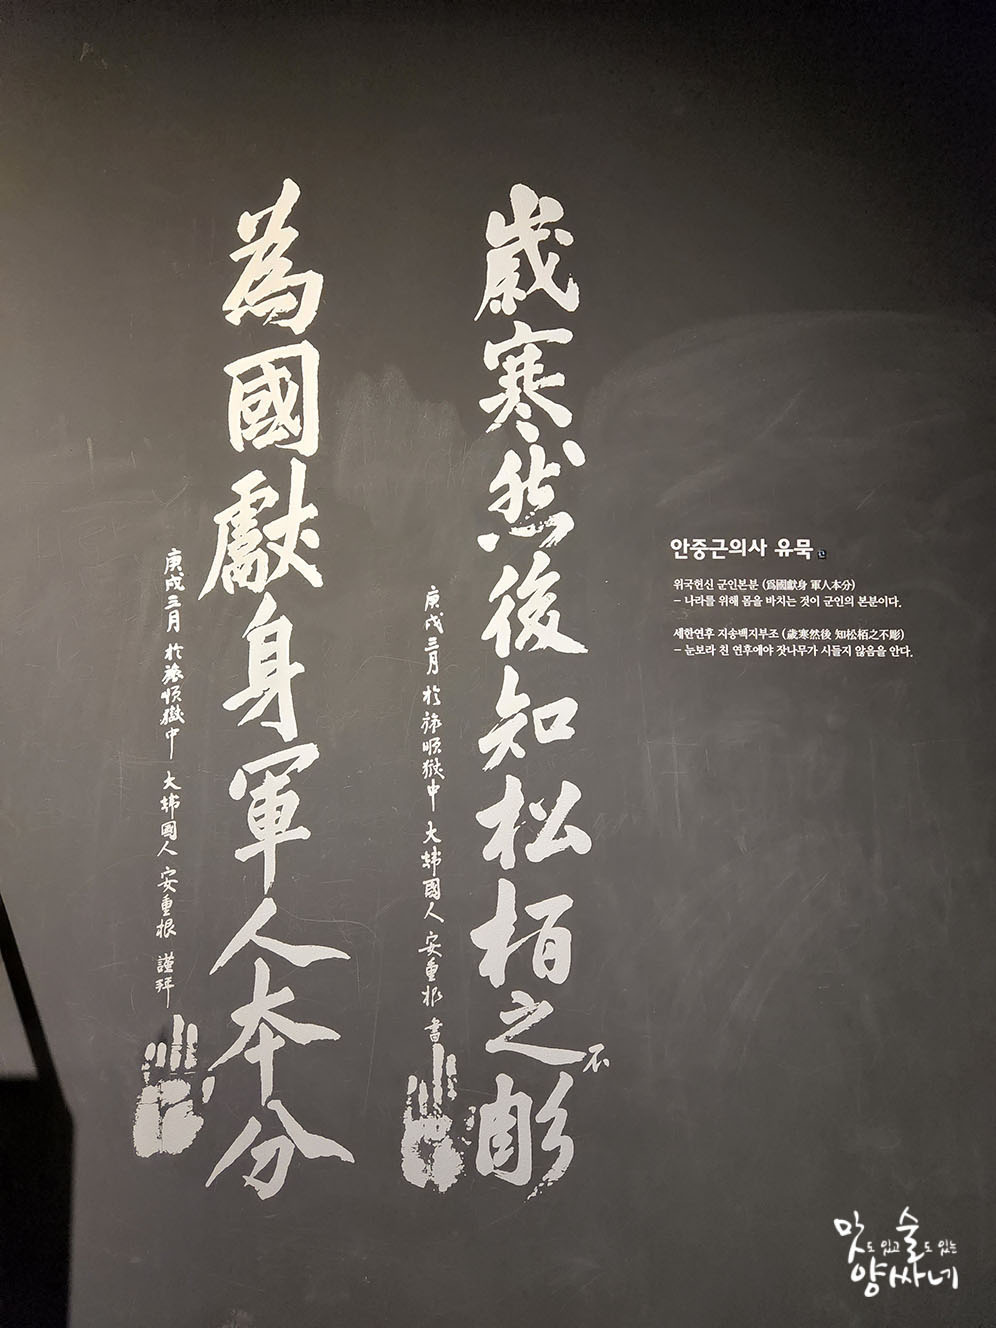 歲寒然後知松栢之不彫
庚戌三月 於旅順獄中 大韓國人 安重根 書
為國獻身軍人本分
庚戌三月 於旅順獄中 大韓國人 安重根 謹拜
안중근의사 유묵
위국헌신 군인본분 (爲國獻身 軍人本分)
– 나라를 위해 몸을 바치는 것이 군인의 본분이다.
세한연후 지송백지부조 (歲寒然後 知松栢之不彫)
– 눈보라 친 연후에야 잣나무가 시들지 않음을 안다.
맛도 있고 술도 있는
양싸네